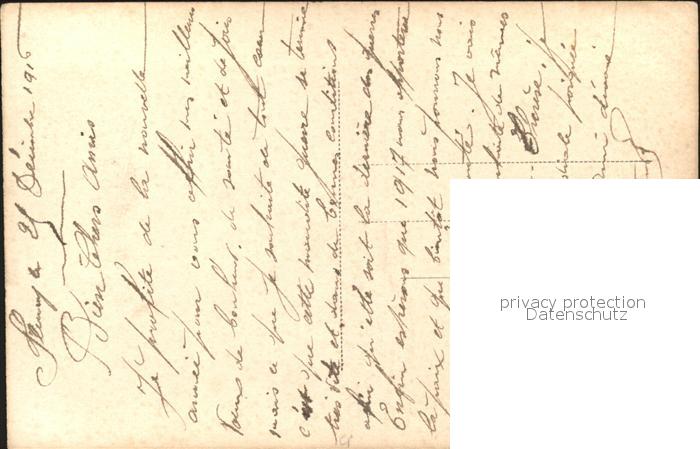 25 Décembre 1916
Bien Chers Amis
Je profite de la nouvelle
année pour vous offrir mes meilleurs
vœux de bonheur, de santé et de joie
mais ce que je souhaite de tout cœur
c'est que cette maudite guerre se termine
très vite et dans de bonnes conditions
afin qu'elle soit la dernière des guerres
Enfin espérons que 1917 nous apportera
la paix et que bientôt nous pourrons nous
Je vais
de mêmes
je
cordiale poignée
ami dévoué
privacy protection
Datenschutz